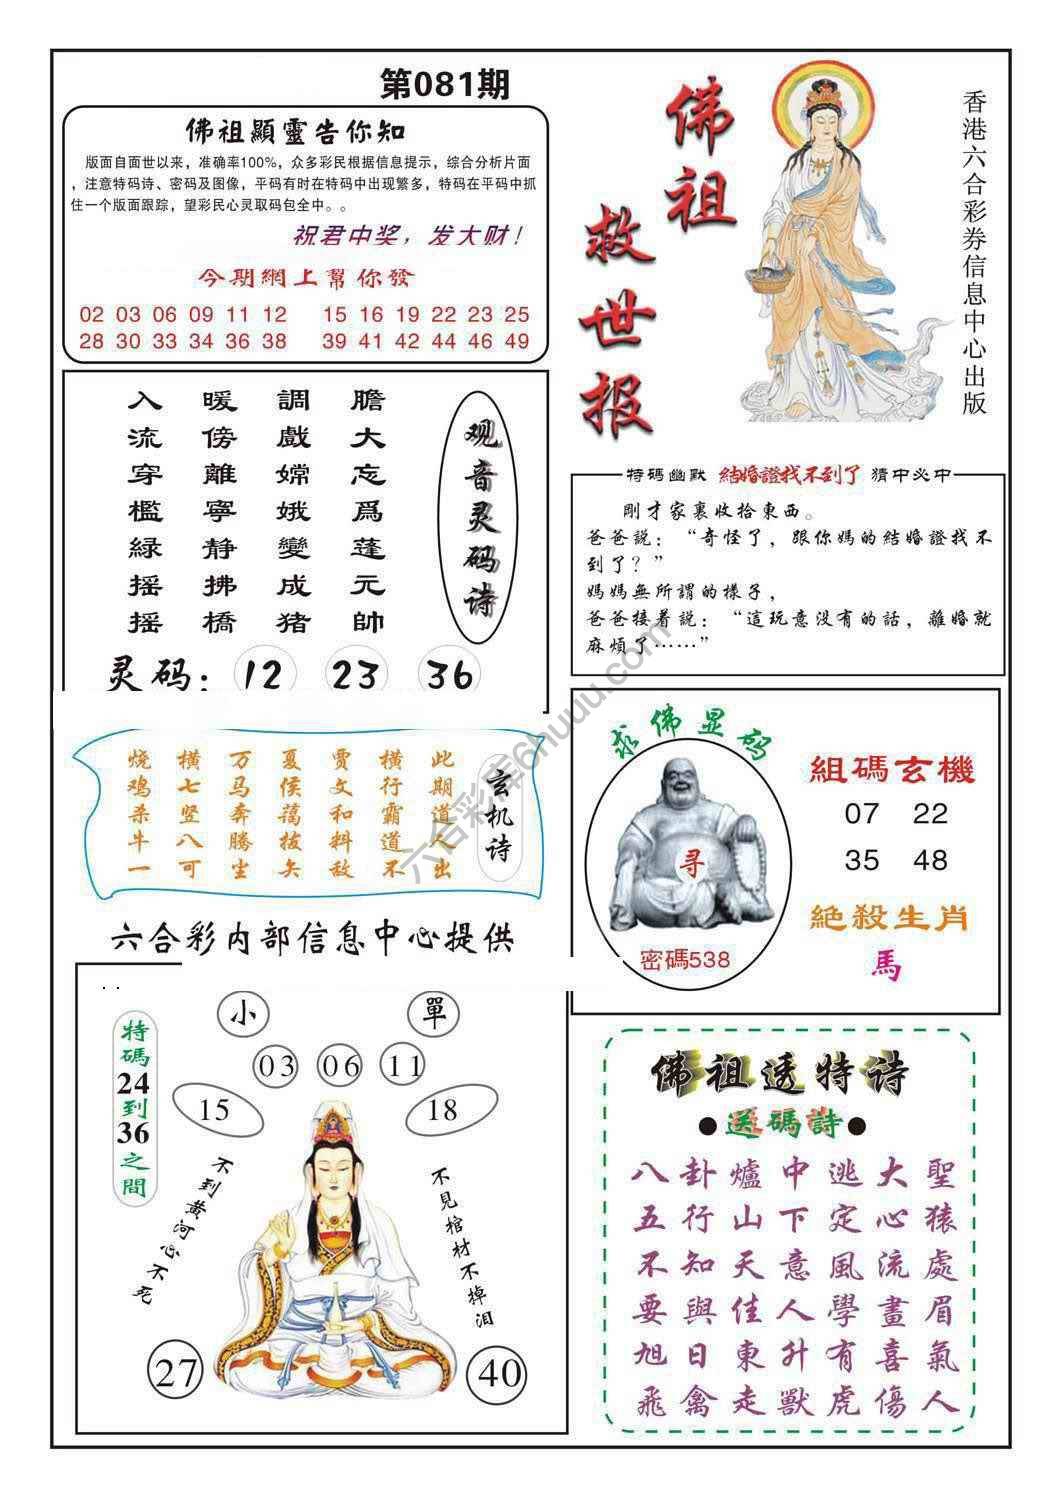 第081期
佛祖顯靈告你知
版面自面世以来，准确率100%，众多彩民根据信息提示，综合分析片面
，注意特码诗、密码及图像，平码有时在特码中出现繁多，特码在平码中抓
住一个版面跟踪，望彩民心灵取码包全中。。
祝君中奖，发大财！
今期網上幫你發
02 03 06 09 11 12 15 16 19 22 23 25
28 30 33 34 36 38 39 41 42 44 46 49
佛祖
救世报
香港六合彩券信息中心出版
观音灵码诗
膽大忘爲蓬元帥
調戲嫦娥變成猪
暖傍離寧静拂橋
入流穿檻緑摇摇
灵码：12 23 36
特碼幽默 結婚證找不到了 猜中必中
剛才家裏收拾東西。
爸爸説：“奇怪了，跟你媽的結婚證找不
到了？”
媽媽無所謂的樣子，
爸爸接着説：“這玩意没有的話，離婚就
麻煩了……”
玄机诗
此期道人出
横行霸道不
贾文和料敌
夏侯蔼拔矢
万马奔腾尘
横七竖八可
烧鸡杀牛一
六合彩内部信息中心提供
求佛显码
寻
密碼538
組碼玄機
07 22
35 48
絶殺生肖
馬
小 單
03 06 11
15 18
特碼24到36之間
不到黄河心不死
不見棺材不掉泪
27 40
佛祖透特诗
●送碼詩●
八卦爐中逃大聖
五行山下定心猿
不知天意風流處
要與佳人學畫眉
旭日東升有喜氣
飛禽走獸虎傷人
六合彩库6huuu.com